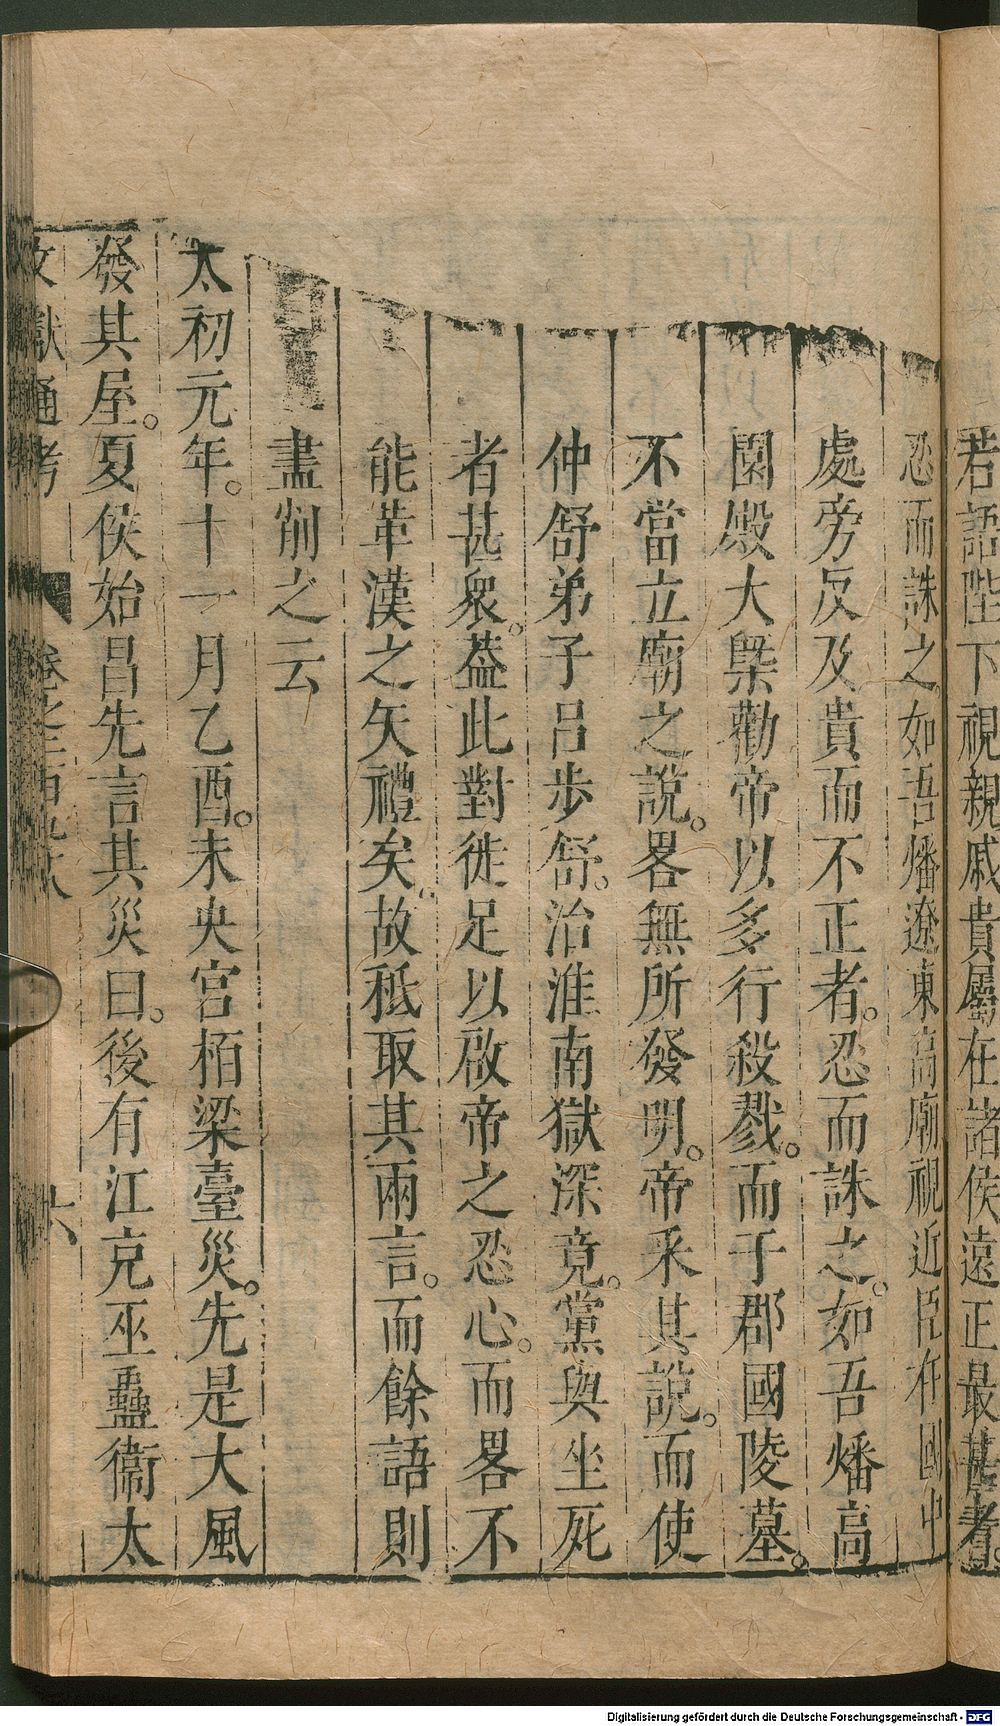 若語陛下視親戚貴屬在諸侯遠正最甚者。
忍而誅之如吾燔遼東高廟視近臣在國中
處旁反及貴而不正者。忍而誅之。如吾燔高
園殿大槩勸帝以多行殺戮。而于郡國陵墓。
不當立廟之說。畧無所發明。帝采其說。而使
仲舒弟子吕步舒。治淮南獄深竟。黨與坐死
者甚衆。葢此對徒足以啟帝之忍心。而畧不
能革漢之矢禮矣故秪取其兩言。而餘語則
盡削之云
太初元年。十一月乙酉。未央宮栢梁臺災。先是大風
發其屋。夏侯始昌先言其災曰。後有江充巫蠱衞太
文獻通考
六
Digitalisierung gefördert durch die Deutsche Forschungsgemeinschaft - DFG